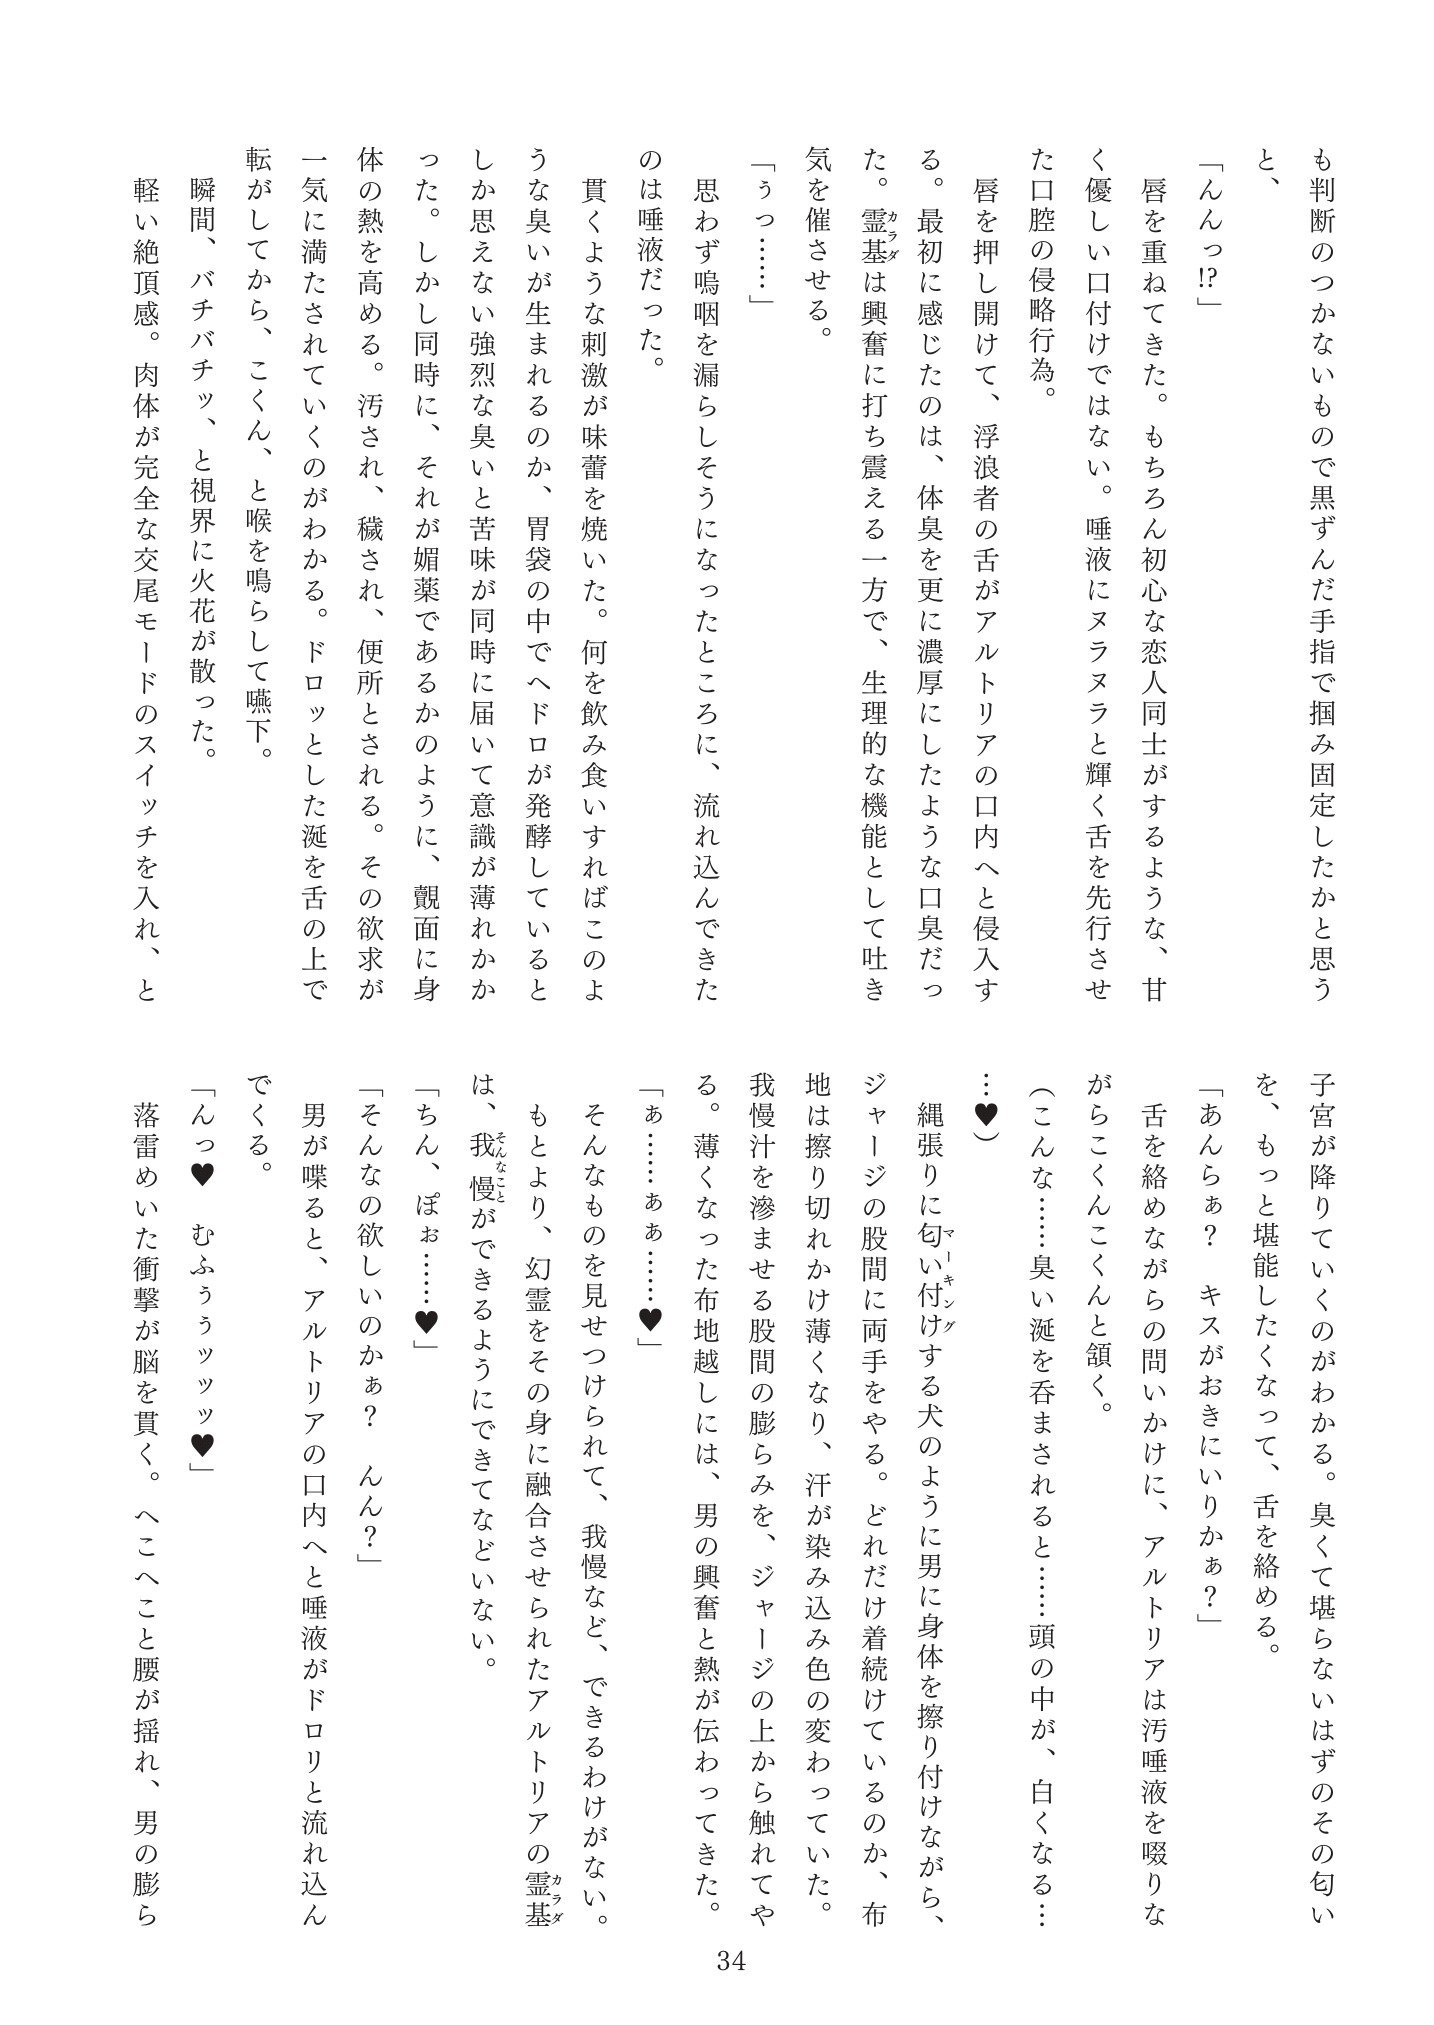 も判断のつかないもので黒ずんだ手指で掴み固定したかと思う
と、
「んんっ!?」
唇を重ねてきた。もちろん初心な恋人同士がするような、甘
く優しい口付けではない。唾液にヌラヌラと輝く舌を先行させ
た口腔の侵略行為。
唇を押し開けて、浮浪者の舌がアルトリアの口内へと侵入す
る。最初に感じたのは、体臭を更に濃厚にしたような口臭だっ
た。霊基カラダは興奮に打ち震える一方で、生理的な機能として吐き
気を催させる。
「ぅっ……」
思わず嗚咽を漏らしそうになったところに、流れ込んできた
のは唾液だった。
貫くような刺激が味蕾を焼いた。何を飲み食いすればこのよ
うな臭いが生まれるのか、胃袋の中でヘドロが発酵していると
しか思えない強烈な臭いと苦味が同時に届いて意識が薄れかか
った。しかし同時に、それが媚薬であるかのように、覿面に身
体の熱を高める。汚され、穢され、便所とされる。その欲求が
一気に満たされていくのがわかる。ドロッとした涎を舌の上で
転がしてから、こくん、と喉を鳴らして嚥下。
瞬間、バチバチッ、と視界に火花が散った。
軽い絶頂感。肉体が完全な交尾モードのスイッチを入れ、と
子宮が降りていくのがわかる。臭くて堪らないはずのその匂い
を、もっと堪能したくなって、舌を絡める。
「あんらぁ？　キスがおきにいりかぁ？」
舌を絡めながらの問いかけに、アルトリアは汚唾液を啜りな
がらこくんこくんと頷く。
（こんな……臭い涎を呑まされると……頭の中が、白くなる…
…♥）
縄張りに匂い付けマーキングする犬のように男に身体を擦り付けながら、
ジャージの股間に両手をやる。どれだけ着続けているのか、布
地は擦り切れかけ薄くなり、汗が染み込み色の変わっていた。
我慢汁を滲ませる股間の膨らみを、ジャージの上から触れてや
る。薄くなった布地越しには、男の興奮と熱が伝わってきた。
「ぁ……ぁぁ……♥」
そんなものを見せつけられて、我慢など、できるわけがない。
もとより、幻霊をその身に融合させられたアルトリアの霊基カラダ
は、我慢そんなことができるようにできてなどいない。
「ちん、ぽぉ……♥」
「そんなの欲しいのかぁ？　んん？」
男が喋ると、アルトリアの口内へと唾液がドロリと流れ込ん
でくる。
「んっ♥　むふぅぅッッッ♥」
落雷めいた衝撃が脳を貫く。へこへこと腰が揺れ、男の膨ら
34